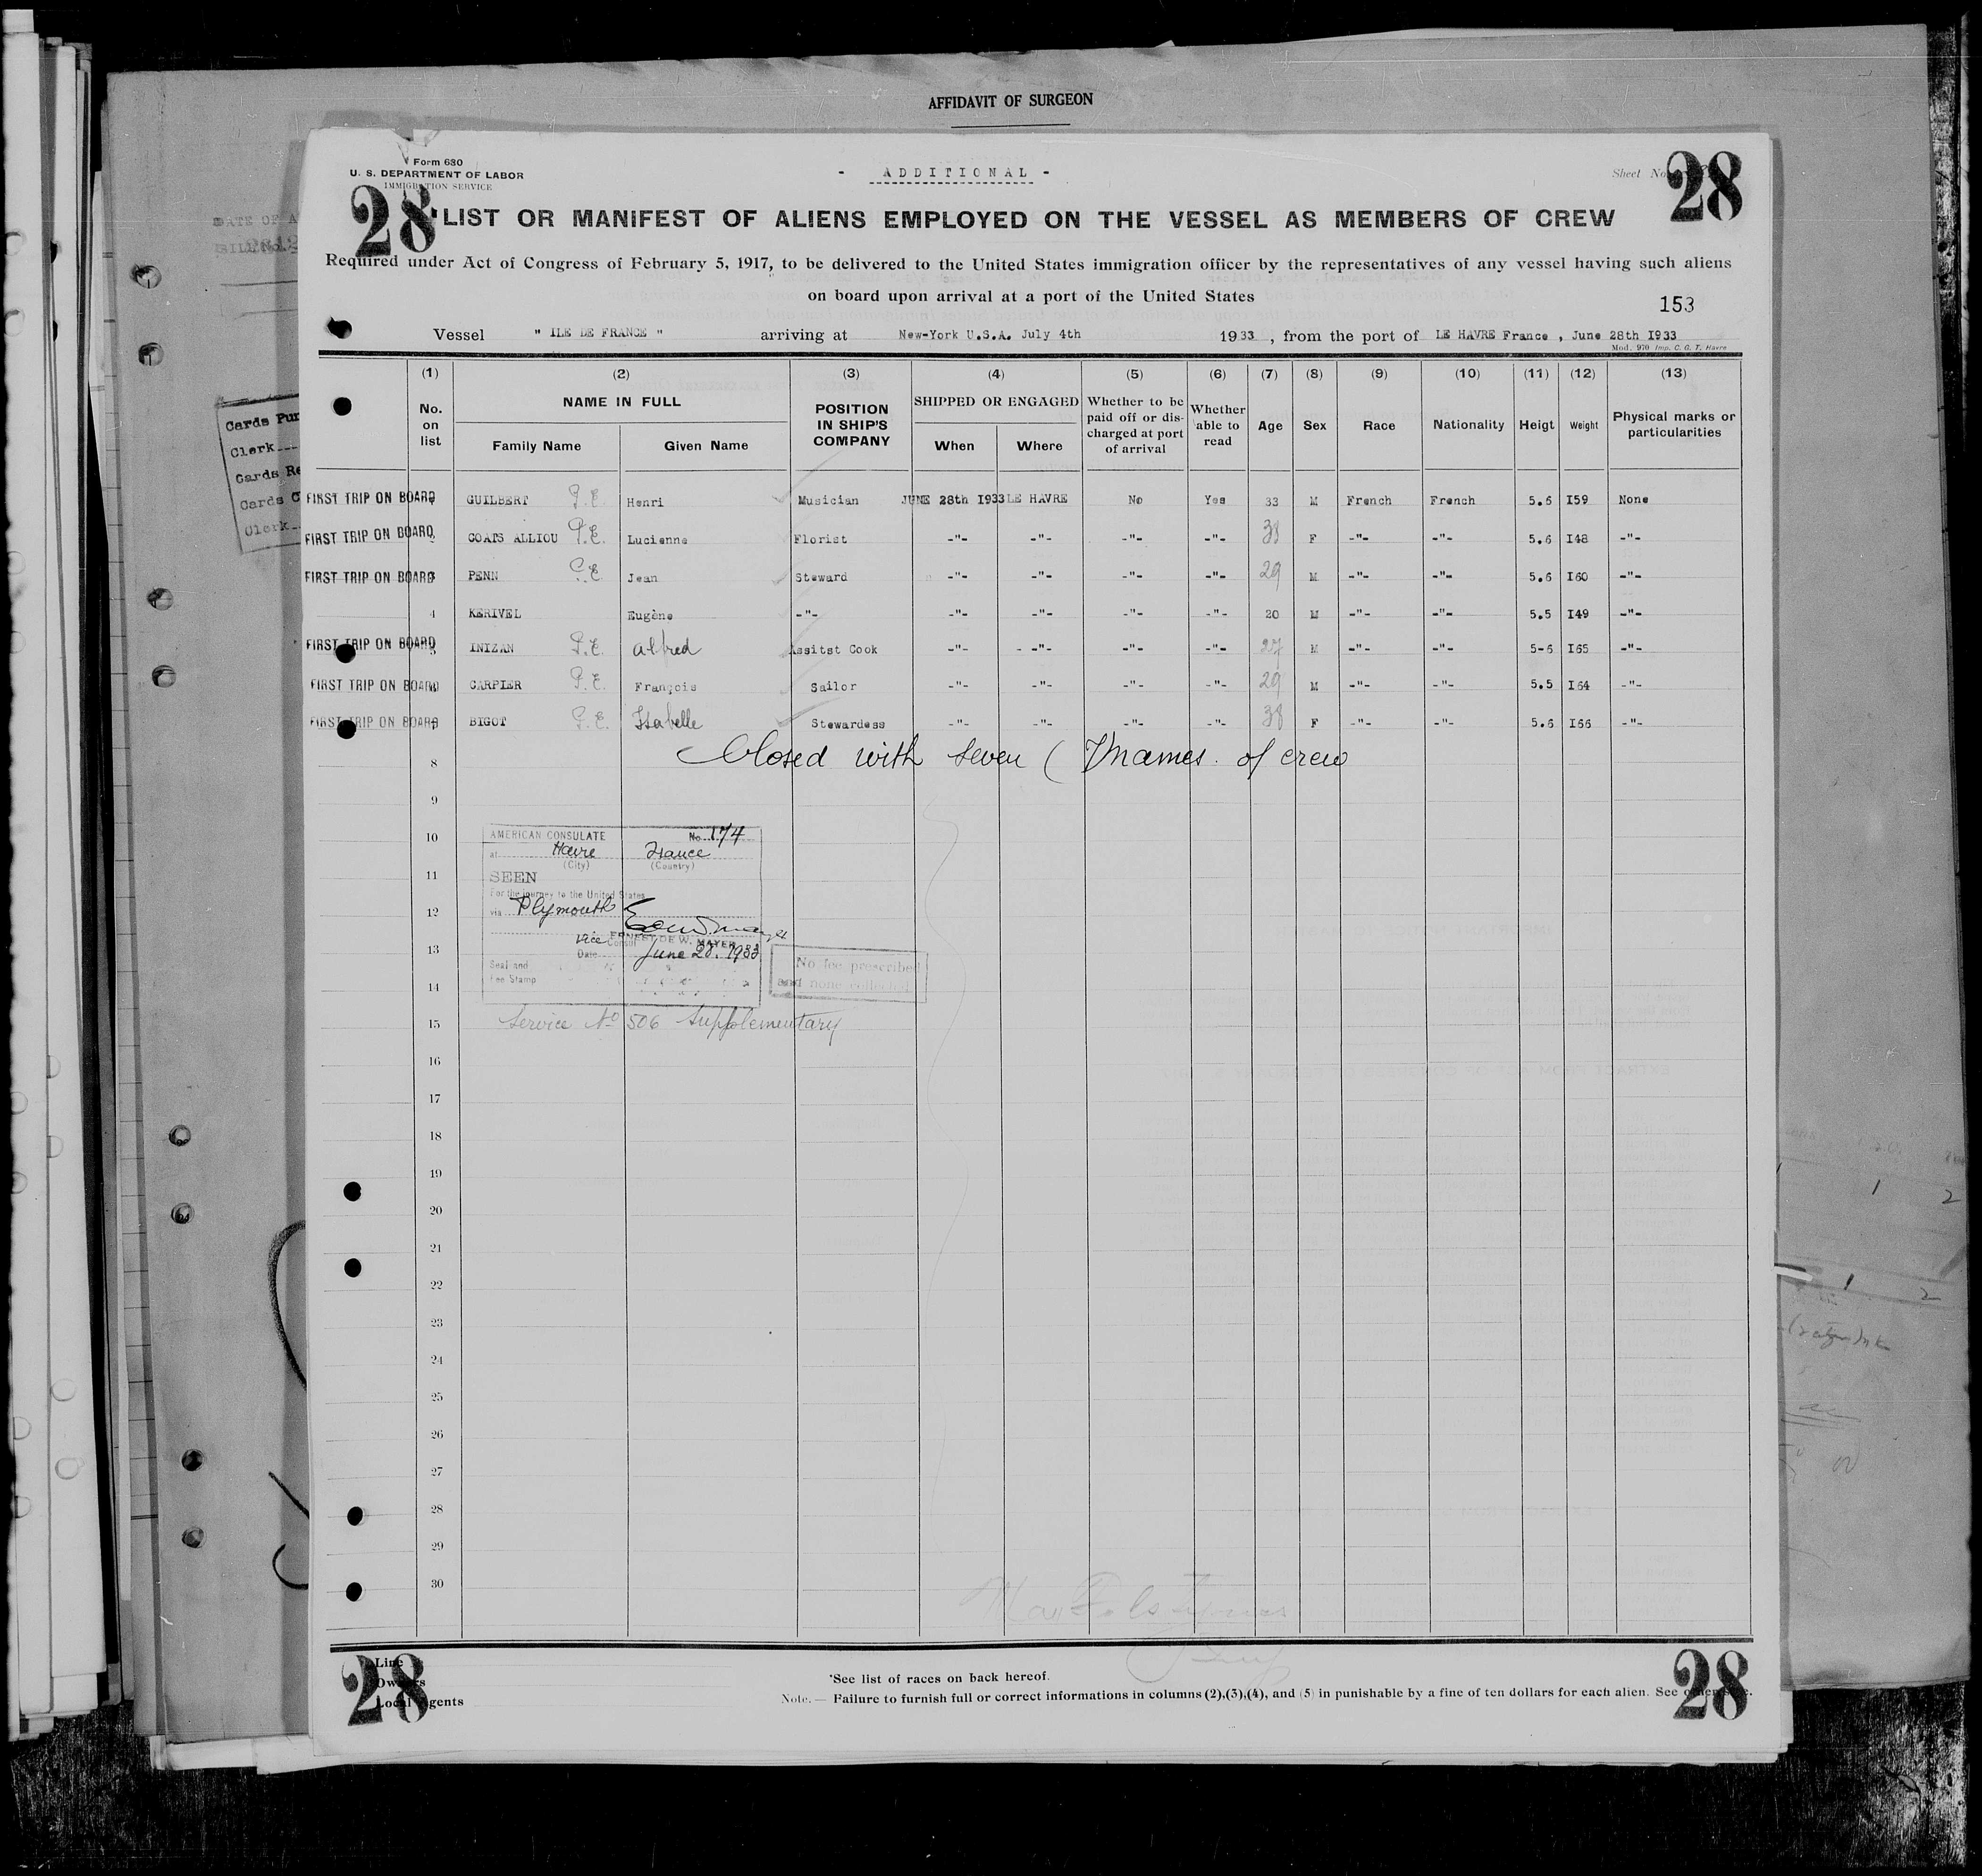 AFFIDAVIT OF SURGEON
Form 680
U. S. DEPARTMENT OF LABOR
IMMIGRATION SERVICE
- ADDITIONAL -
Sheet No
28
28
LIST OR MANIFEST OF ALIENS EMPLOYED ON THE VESSEL AS MEMBERS OF CREW
Required under Act of Congress of February 5, 1917, to be delivered to the United States immigration officer by the representatives of any vessel having such aliens
on board upon arrival at a port of the United States
153
Vessel " ILE DE FRANCE " arriving at New-York U.S.A. July 4th 1933 , from the port of LE HAVRE France , June 28th I933
Mod. 970 Imp. C. G. T. Havre
(1) (2) (3) (4) (5) (6) (7) (8) (9) (10) (11) (12) (13)
No. on list
NAME IN FULL
Family Name Given Name
POSITION IN SHIP'S COMPANY
SHIPPED OR ENGAGED
When Where
Whether to be paid off or discharged at port of arrival
Whether able to read
Age Sex Race Nationality Heigt Weight
Physical marks or particularities
Cards
Clerk
Cards
Cards
Clerk
FIRST TRIP ON BOARD GUILBERT P.E. Henri Musician JUNE 28th I933 LE HAVRE No Yes 33 M French French 5.6 I59 None
FIRST TRIP ON BOARD COATS ALLIOU P.E. Lucienne Florist -"- -"- -"- -"- 38 F -"- -"- 5.6 I48 -"-
FIRST TRIP ON BOARD PENN P.E. Jean Steward -"- -"- -"- -"- 29 M -"- -"- 5.6 I60 -"-
4 KERIVEL Eugène -"- -"- -"- -"- -"- 20 M -"- -"- 5.5 I49 -"-
FIRST TRIP ON BOARD 5 INIZAN P.E. Alfred Assitst Cook -"- -"- -"- -"- 27 M -"- -"- 5-6 I65 -"-
FIRST TRIP ON BOARD CARPIER P.E. François Sailor -"- -"- -"- -"- 29 M -"- -"- 5.5 I64 -"-
FIRST TRIP ON BOARD BIGOT P.E. Isabelle Stewardess -"- -"- -"- -"- 38 F -"- -"- 5.6 I66 -"-
Closed with seven (7) names. of crew
8
9
10
AMERICAN CONSULATE No. 174
at Havre France
(City) (Country)
11
SEEN
For the journey to the United States
12
via Plymouth
Vice Consul ERNEST DE W. MAYER
13
Date June 28. 1933
Seal and
Fee Stamp
No fee prescribed
and none collected
14
15
Service No 506 Supplementary
16
17
18
19
20
21
22
23
24
25
26
27
28
29
30
28
28
Line
Owners
Local Agents
*See list of races on back hereof.
Note. — Failure to furnish full or correct informations in columns (2),(3),(4), and (5) in punishable by a fine of ten dollars for each alien. See